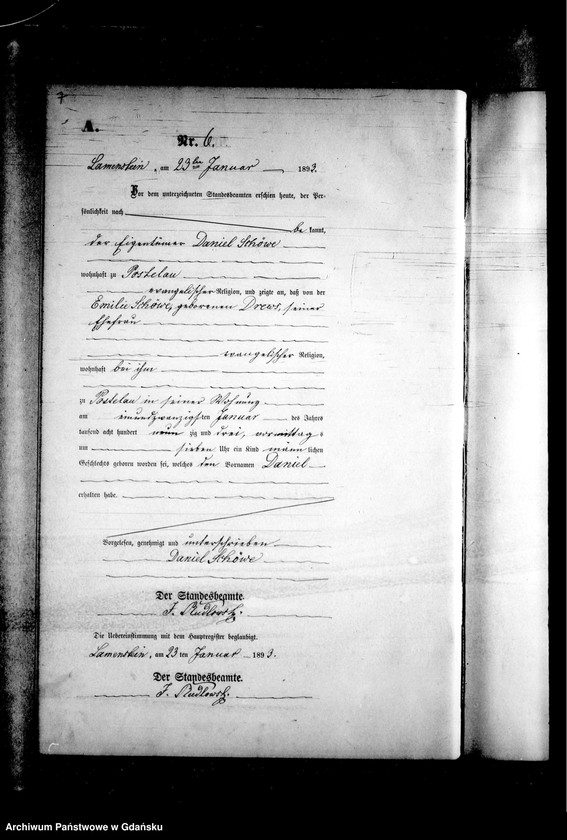 A.
Nr. 6.
Lamenstein, am 23ten Januar 1893.
Vor dem unterzeichneten Standesbeamten erschien heute, der Per-
sönlichkeit nach
be kannt,
der Eigentümer Daniel Schöwe
wohnhaft zu Postelau
evangelischer Religion, und zeigte an, daß von der
Emilie Schöwe, geborenen Drews, seiner
Ehefrau
evangelischer Religion,
wohnhaft bei ihm
zu Postelau in seiner Wohnung
am einundzwanzigsten Januar des Jahres
tausend acht hundert neun zig und drei, vormittag s
um sieben Uhr ein Kind männ lichen
Geschlechts geboren worden sei, welches den Vornamen Daniel
erhalten habe.
Vorgelesen, genehmigt und unterschrieben
Daniel Schöwe
Der Standesbeamte.
F.
Die Uebereinstimmung mit dem Hauptregister beglaubigt.
Lamenstein, am 23 ten Januar 1893.
Der Standesbeamte.
F.
Archiwum Państwowe w Gdańsku